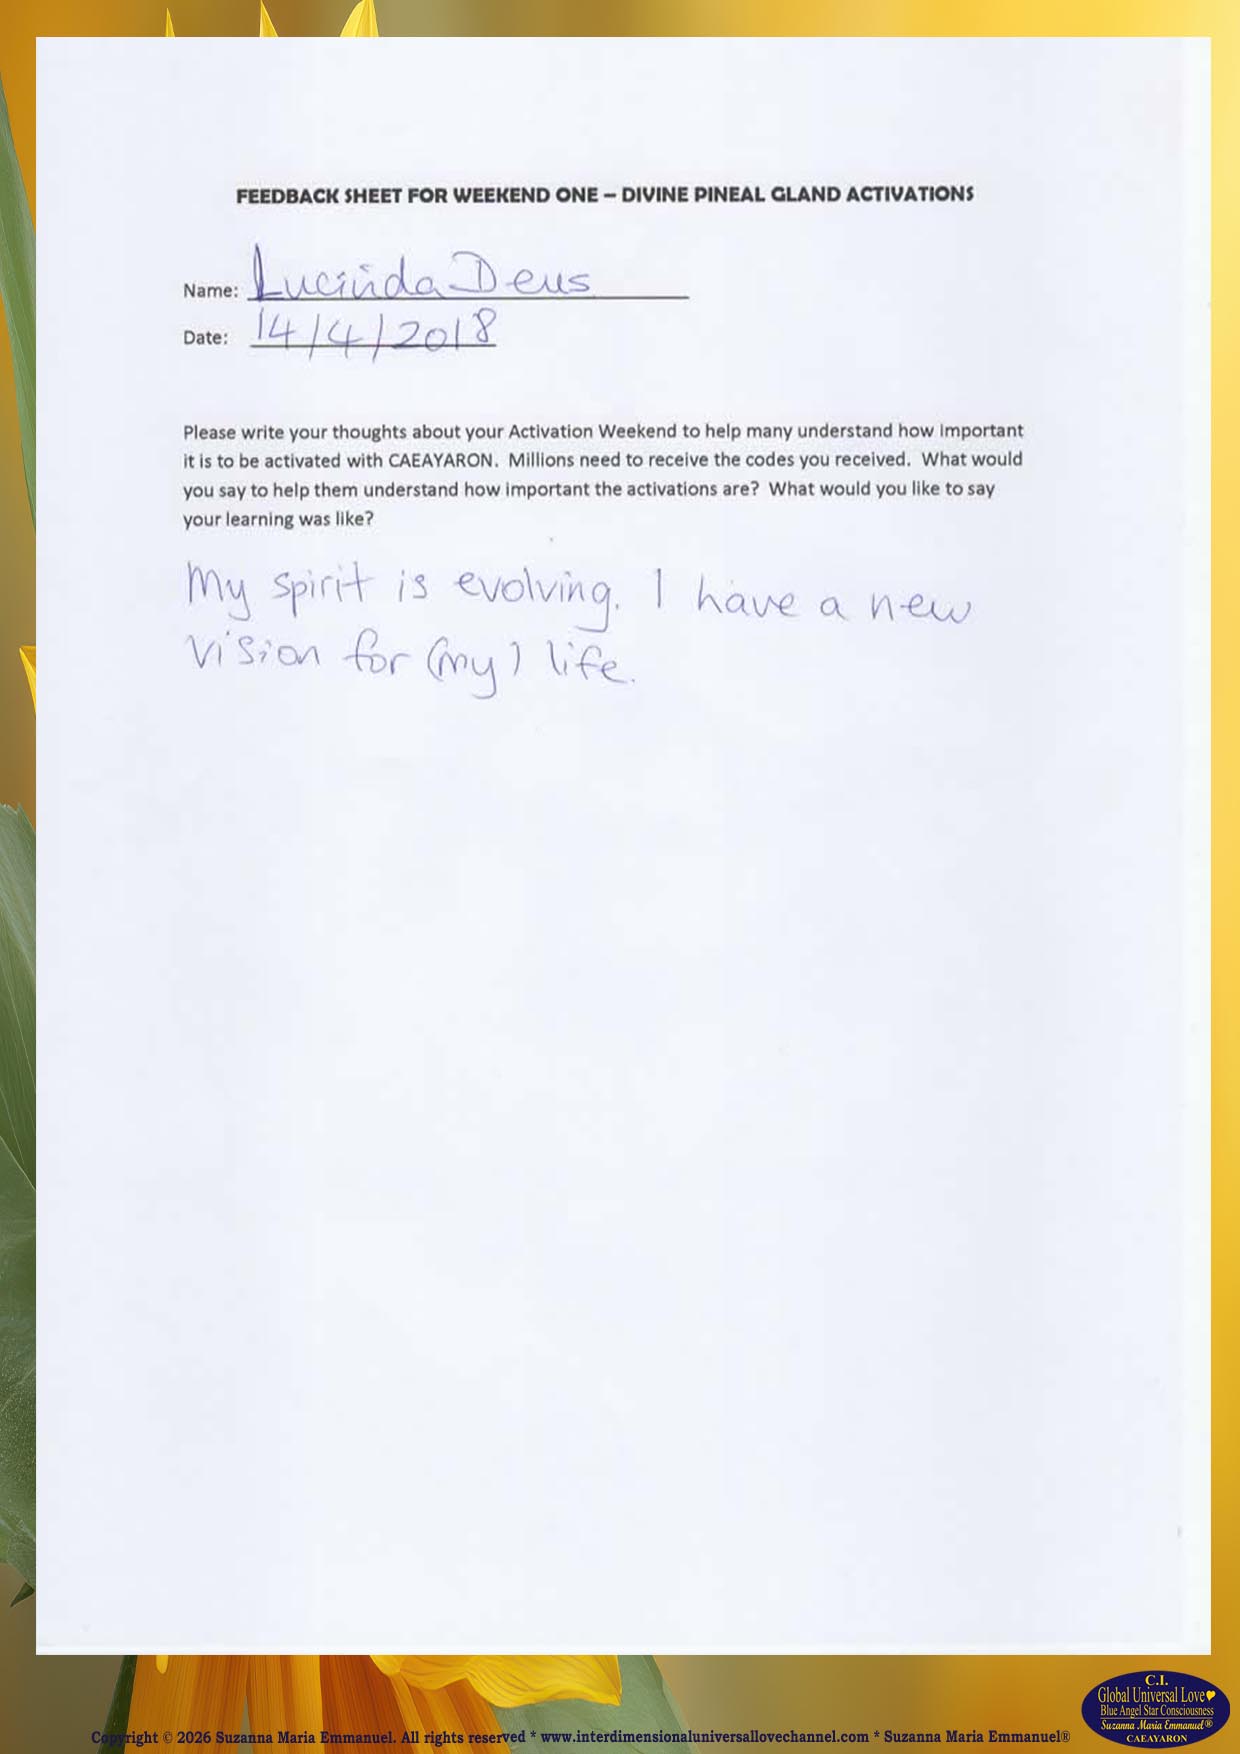 FEEDBACK SHEET FOR WEEKEND ONE – DIVINE PINEAL GLAND ACTIVATIONS
Name: Lucinda Deus
Date: 14/4/2018
Please write your thoughts about your Activation Weekend to help many understand how important
it is to be activated with CAEAYARON. Millions need to receive the codes you received. What would
you say to help them understand how important the activations are? What would you like to say
your learning was like?
My spirit is evolving. I have a new
vision for (my) life.
C.I.
Global Universal Love
Blue Angel Star Consciousness
Suzanna Maria Emmanuel®
CAEAYARON
Copyright © 2026 Suzanna Maria Emmanuel. All rights reserved * www.interdimensionaluniversallovechannel.com * Suzanna Maria Emmanuel®